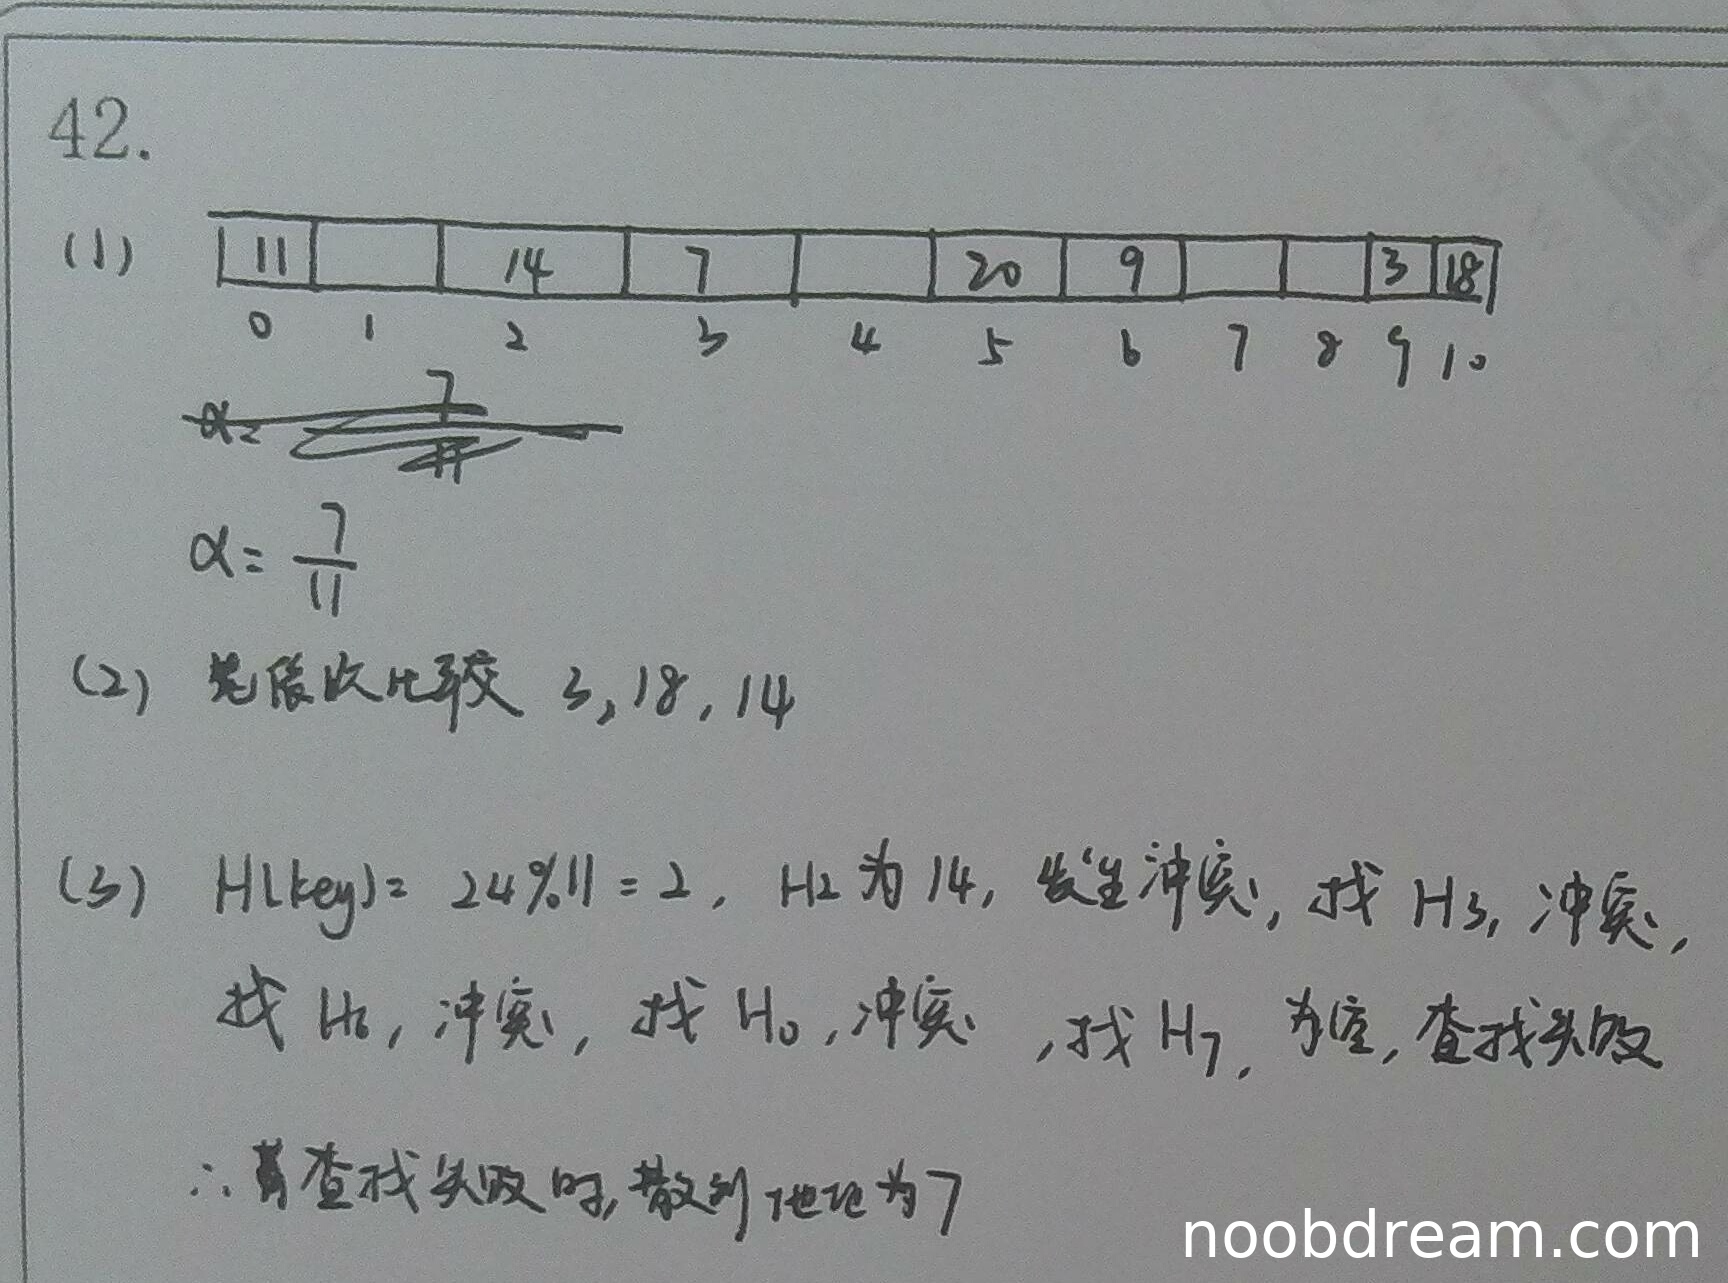 42.
(1) 11 14 7 20 9 3 18
0 1 2 3 4 5 6 7 8 9 10
α=7/11
α=7/11
(2) 先依次比较 3, 18, 14
(3) H(key)= 24%11=2, H2为14, 发生冲突, 找H3, 冲突,
找H6, 冲突, 找H0, 冲突, 找H7, 为空, 查找失败
∴ 查找失败时, 散列地址为7
noobdream.com